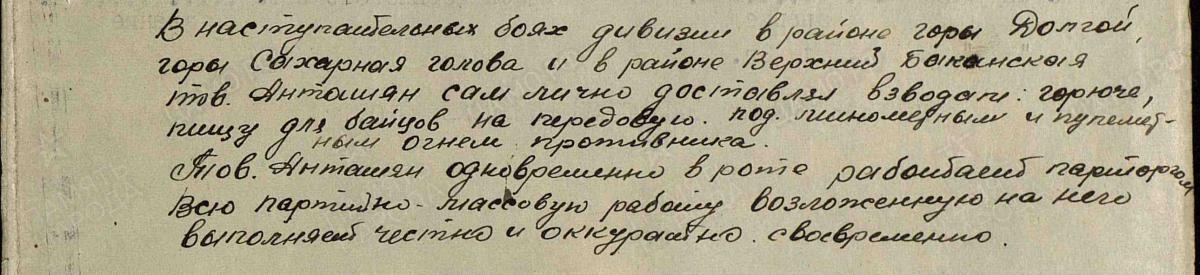 В наступательных боях дивизии в районе горы Долгой,
горы Сахарная голова и в районе Верхний Баканская
тов. Анташян сам лично доставлял взводам: горюче,
пищу для байцов на передовую. под. миномётным и пулемет-
ным огнем противника.
Тов. Анташян одновременно в роте работает парторгом
всю партийно-массовую работу возложенную на него
выполняет честно и оккуратно. своевременно.